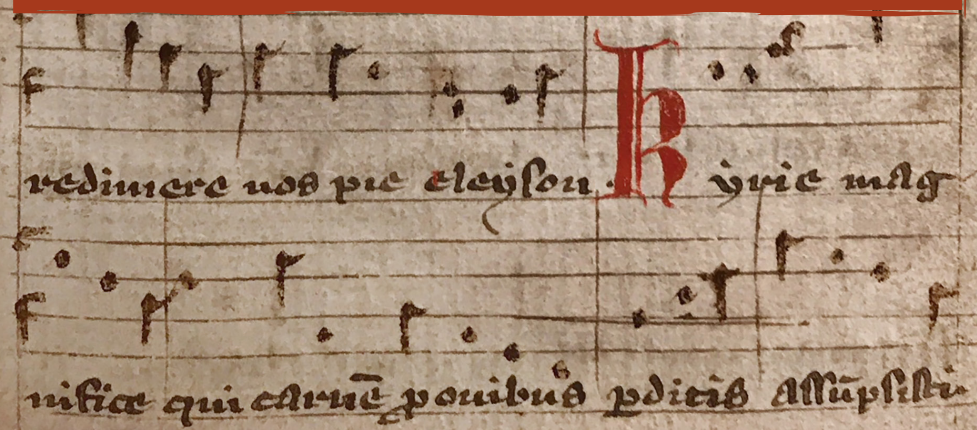 redimere nos pie eleyson · Kyrie mag
nifice qui carnē ꝓ ouibus ꝑditis assūpsisti